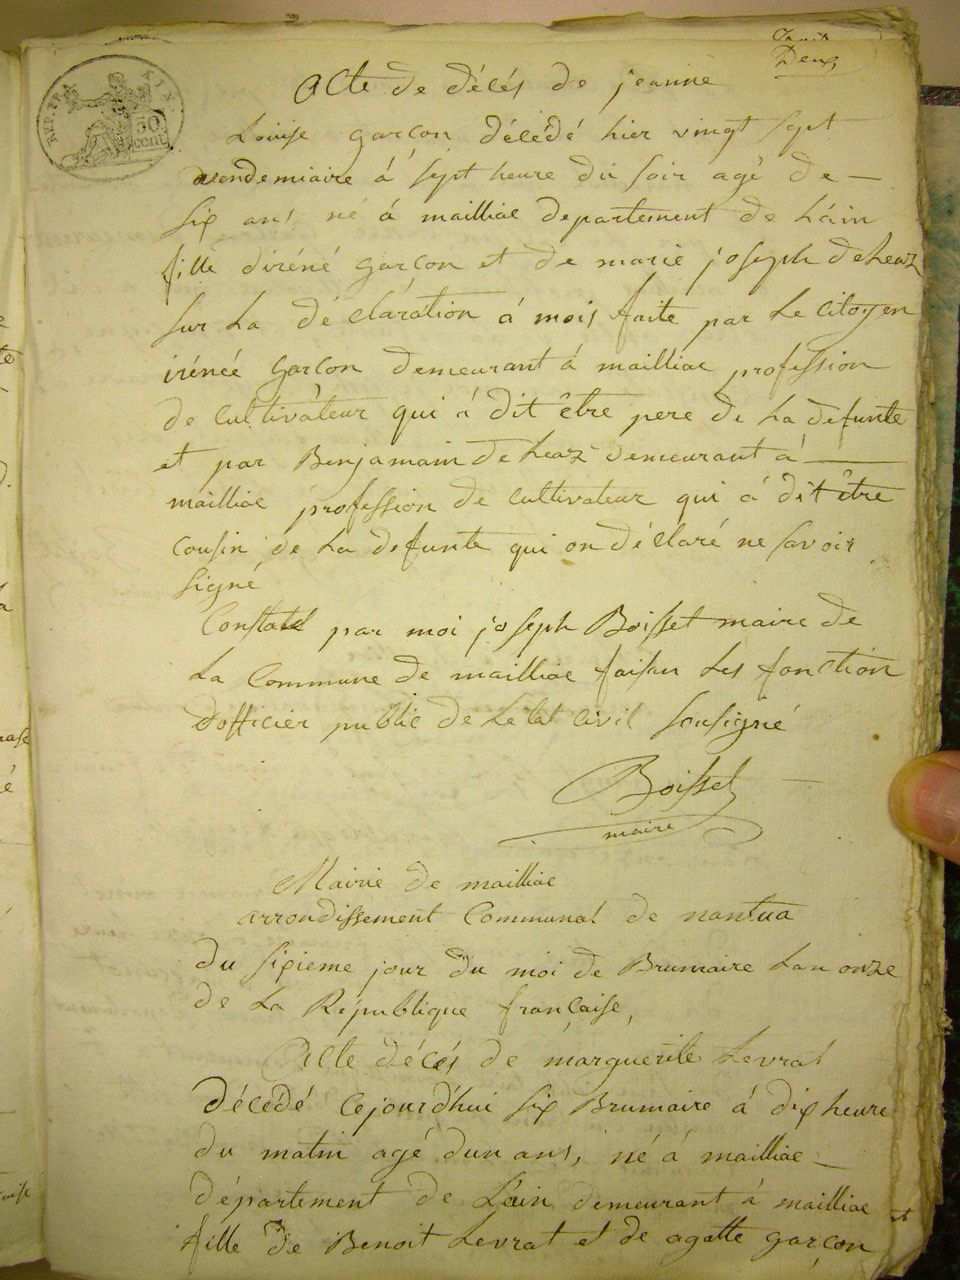 Deux
REP. FRA
AIN.
50
cent.
Acte de décés de jeanne
Louise garçon décédé hier vingt sept
vendemiaire á sept heure du soir agé de —
six ans né á mailliac departement de Láin
fille diréné garçon et de marie joseph deheaz
sur La déclaration á mois faite par Le Citoyen
irénéé garçon demeurant á mailliac profession
de cultivateur qui á dit être pere de La defunte
et par Benjamain deheaz demeurant á —
mailliac profession de cultivateur qui á dit être
cousin de La defunte qui on déclaré ne savoir
signé
Constaté par moi joseph Boisset maire de
La Commune de mailliac faisan Les fonction
dofficier public de Letat civil sousigné
Boisset
maire
Mairie de mailliac
arrondissement Communal de nantua
du sixieme jour du moi de Brumaire Lan onze
de La République françaisse,
Acte décés de marguerite Levrat
décédé cejourdhui six Brumaire á dix heure
du matin agé dun ans, né á mailliac —
département de Láin demeurant á mailliac
fille de Benoit Levrat et de agatte garçon